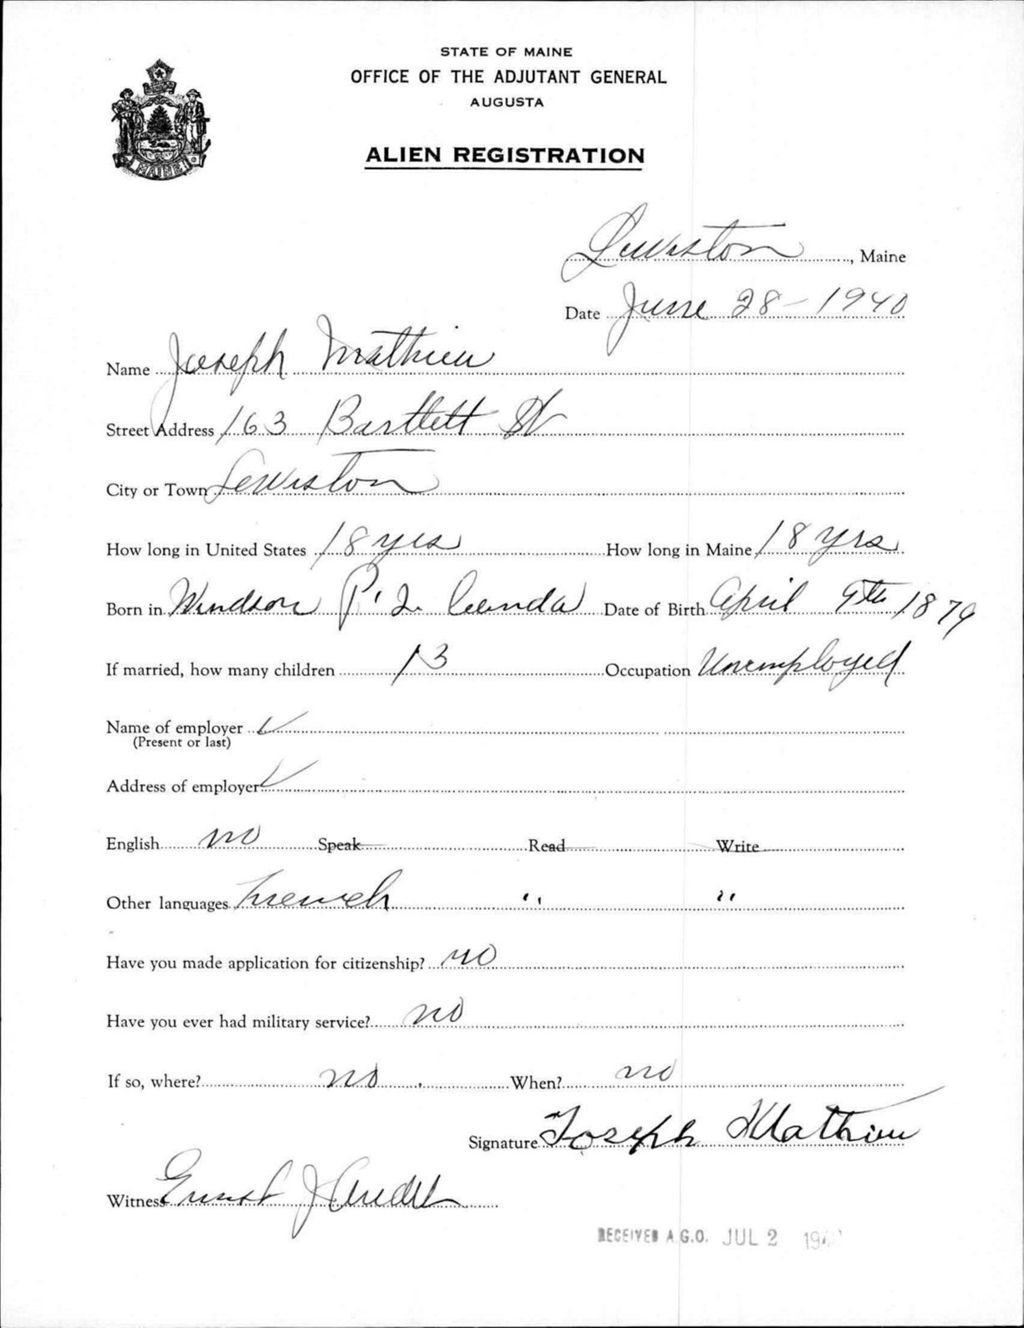 STATE OF MAINE
OFFICE OF THE ADJUTANT GENERAL
AUGUSTA
ALIEN REGISTRATION
MAINE
Lewiston, Maine
Date June 28 - 1940
Name Joseph Mathieu
Street Address 163 Bartlett St
City or Town Lewiston
How long in United States 18 yrs How long in Maine 18 yrs
Born in Windsor P.Q. Canda Date of Birth April 9th 1879
If married, how many children 13 Occupation Unemployed
Name of employer ✓
(Present or last)
Address of employer ✓
English no Speak Read Write
Other languages French " "
Have you made application for citizenship? no
Have you ever had military service? no
If so, where? no When? no
Signature Joseph Mathieu
Witness Ernest J
RECEIVED A.G.O. JUL 2 194